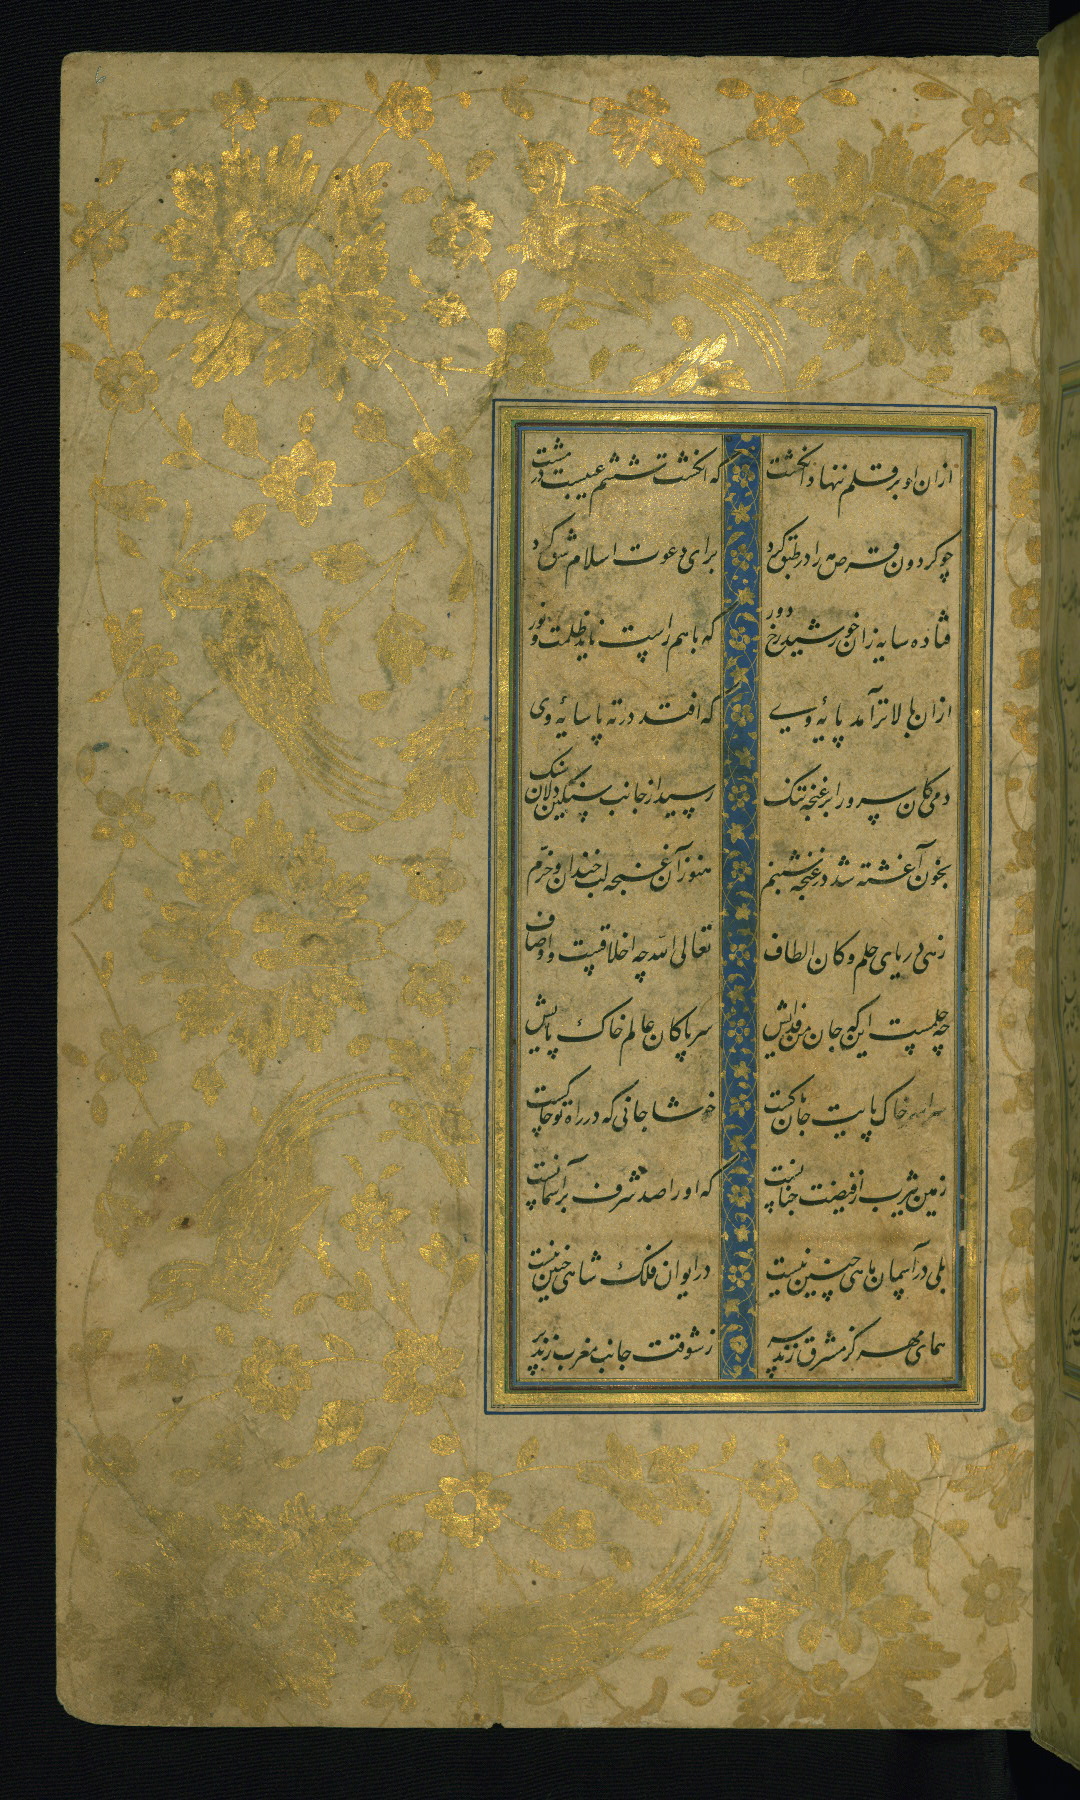 ازان او بر قلم ننهاد انگشت که انگشت ششم عیبست در مشت
چو گردون قرص مه را در طبق کرد برای دعوت اسلام شق کرد
فتاده سایه زان خورشید رخ دور که باهم راست ناید ظلمت و نور
ازان بالاتر آمد پایهٔ وی که افتد در ته پا سایهٔ وی
دمی کان سرور ابر غنچه تنک رسید از جانب سنگین دلان سنک
بخون آغشته شد در غنچه شبنم هنوز آن غنچه لب خندان و خرّم
زهی دریای حلم و کان الطاف تعالی الله چه اخلاقیست و اوصاف
چه حلمست این که جان من فدایش سر پاکان عالم خاک پایش
خاک پایت جان پاکست خوشا جانی که در راه تو خاکست
زمین یثرب از فیضت جنانیست که او را صد شرف بر آسمانست
بلی در آسمان ماهی چنین نیست در ایوان فلک شاهی چنین نیست
همای مهر کز مشرق زند پر ز شوقت جانب مغرب زند پر